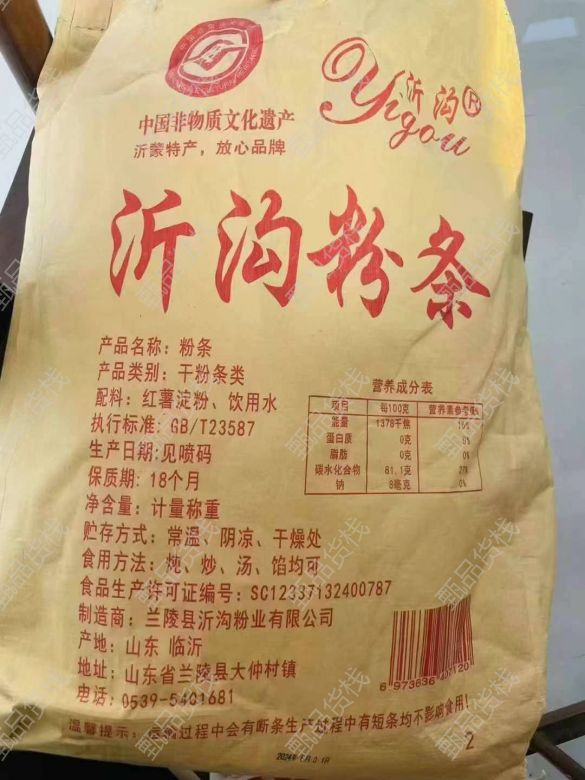 中国非物质文化遗产
沂蒙特产，放心品牌
沂沟®
Yigou
沂沟粉条
产品名称：粉条
产品类别：干粉条类
配料：红薯淀粉、饮用水
执行标准：GB/T23587
生产日期:见喷码
保质期：18个月
净含量：计量称重
贮存方式：常温、阴凉、干燥处
食用方法：炖、炒、汤、馅均可
食品生产许可证编号：SC12337132400787
制造商：兰陵县沂沟粉业有限公司
产地：山东 临沂
地址：山东省兰陵县大仲村镇
电话：0539-5401681
营养成分表
项目 每100克 营养素参考值%
能量 1378千焦 16%
蛋白质 0克 0%
脂肪 0克 0%
碳水化合物 81.1克 27%
钠 8毫克 0%
温馨提示：运输过程中会有断条生产过程中有短条均不影响食用！
2
甄品货栈